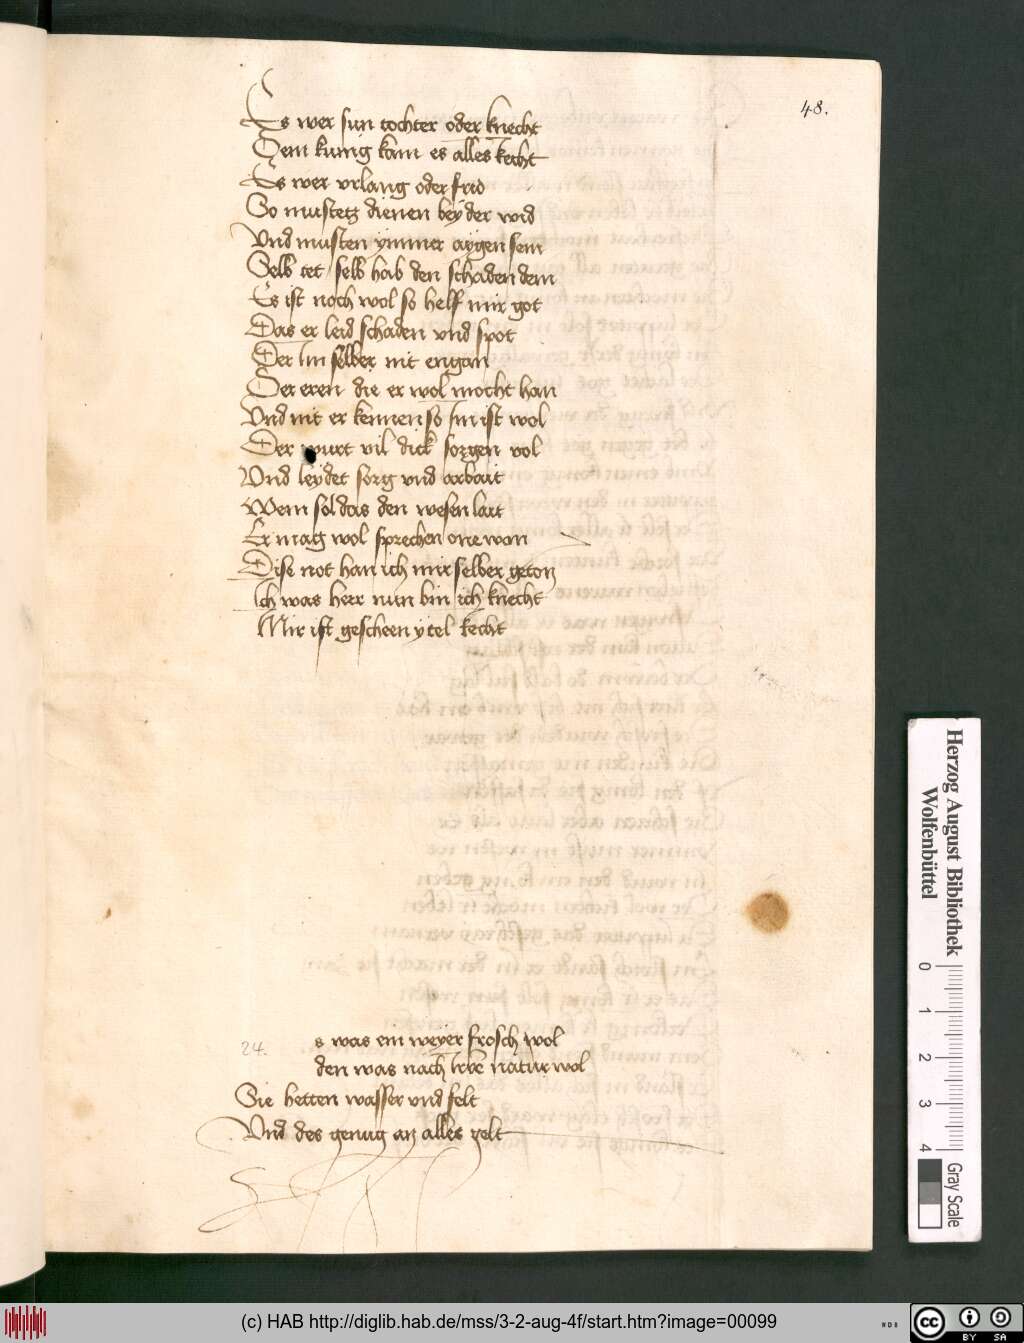 48.
Es wer sun tochter oder knecht
Dem kunig kam es alles recht
Es wer vrlang oder frid
So mustetz dienen bey der wid
Vnd musten ymmer aygen sein
Selb tet selb hab den schaden dein
Es ist noch wol so helf mir got
Das er leid schaden vnd spot
Der im selber nit engan
Der eren die er wol mocht han
Vnd nit er kennen so im ist wol
Der wurt vil dick sorgen vol
Vnd leydet sorg vnd arbait
Wem sol das den wesen lait
Er mag wol sprechen one won
Dise not han ich mir selber geton
Ich was herr nun bin ich knecht
Mir ist gescheen ytel recht
24.
s was ein weyer frosch wol
den was nach irer natur wol
Sie hetten wasser vnd felt
Vnd des genug an alles gelt
Herzog August Bibliothek
Wolfenbüttel
0 1 2 3 4
Gray Scale
(c) HAB http://diglib.hab.de/mss/3-2-aug-4f/start.htm?image=00099
WDB
cc BY SA